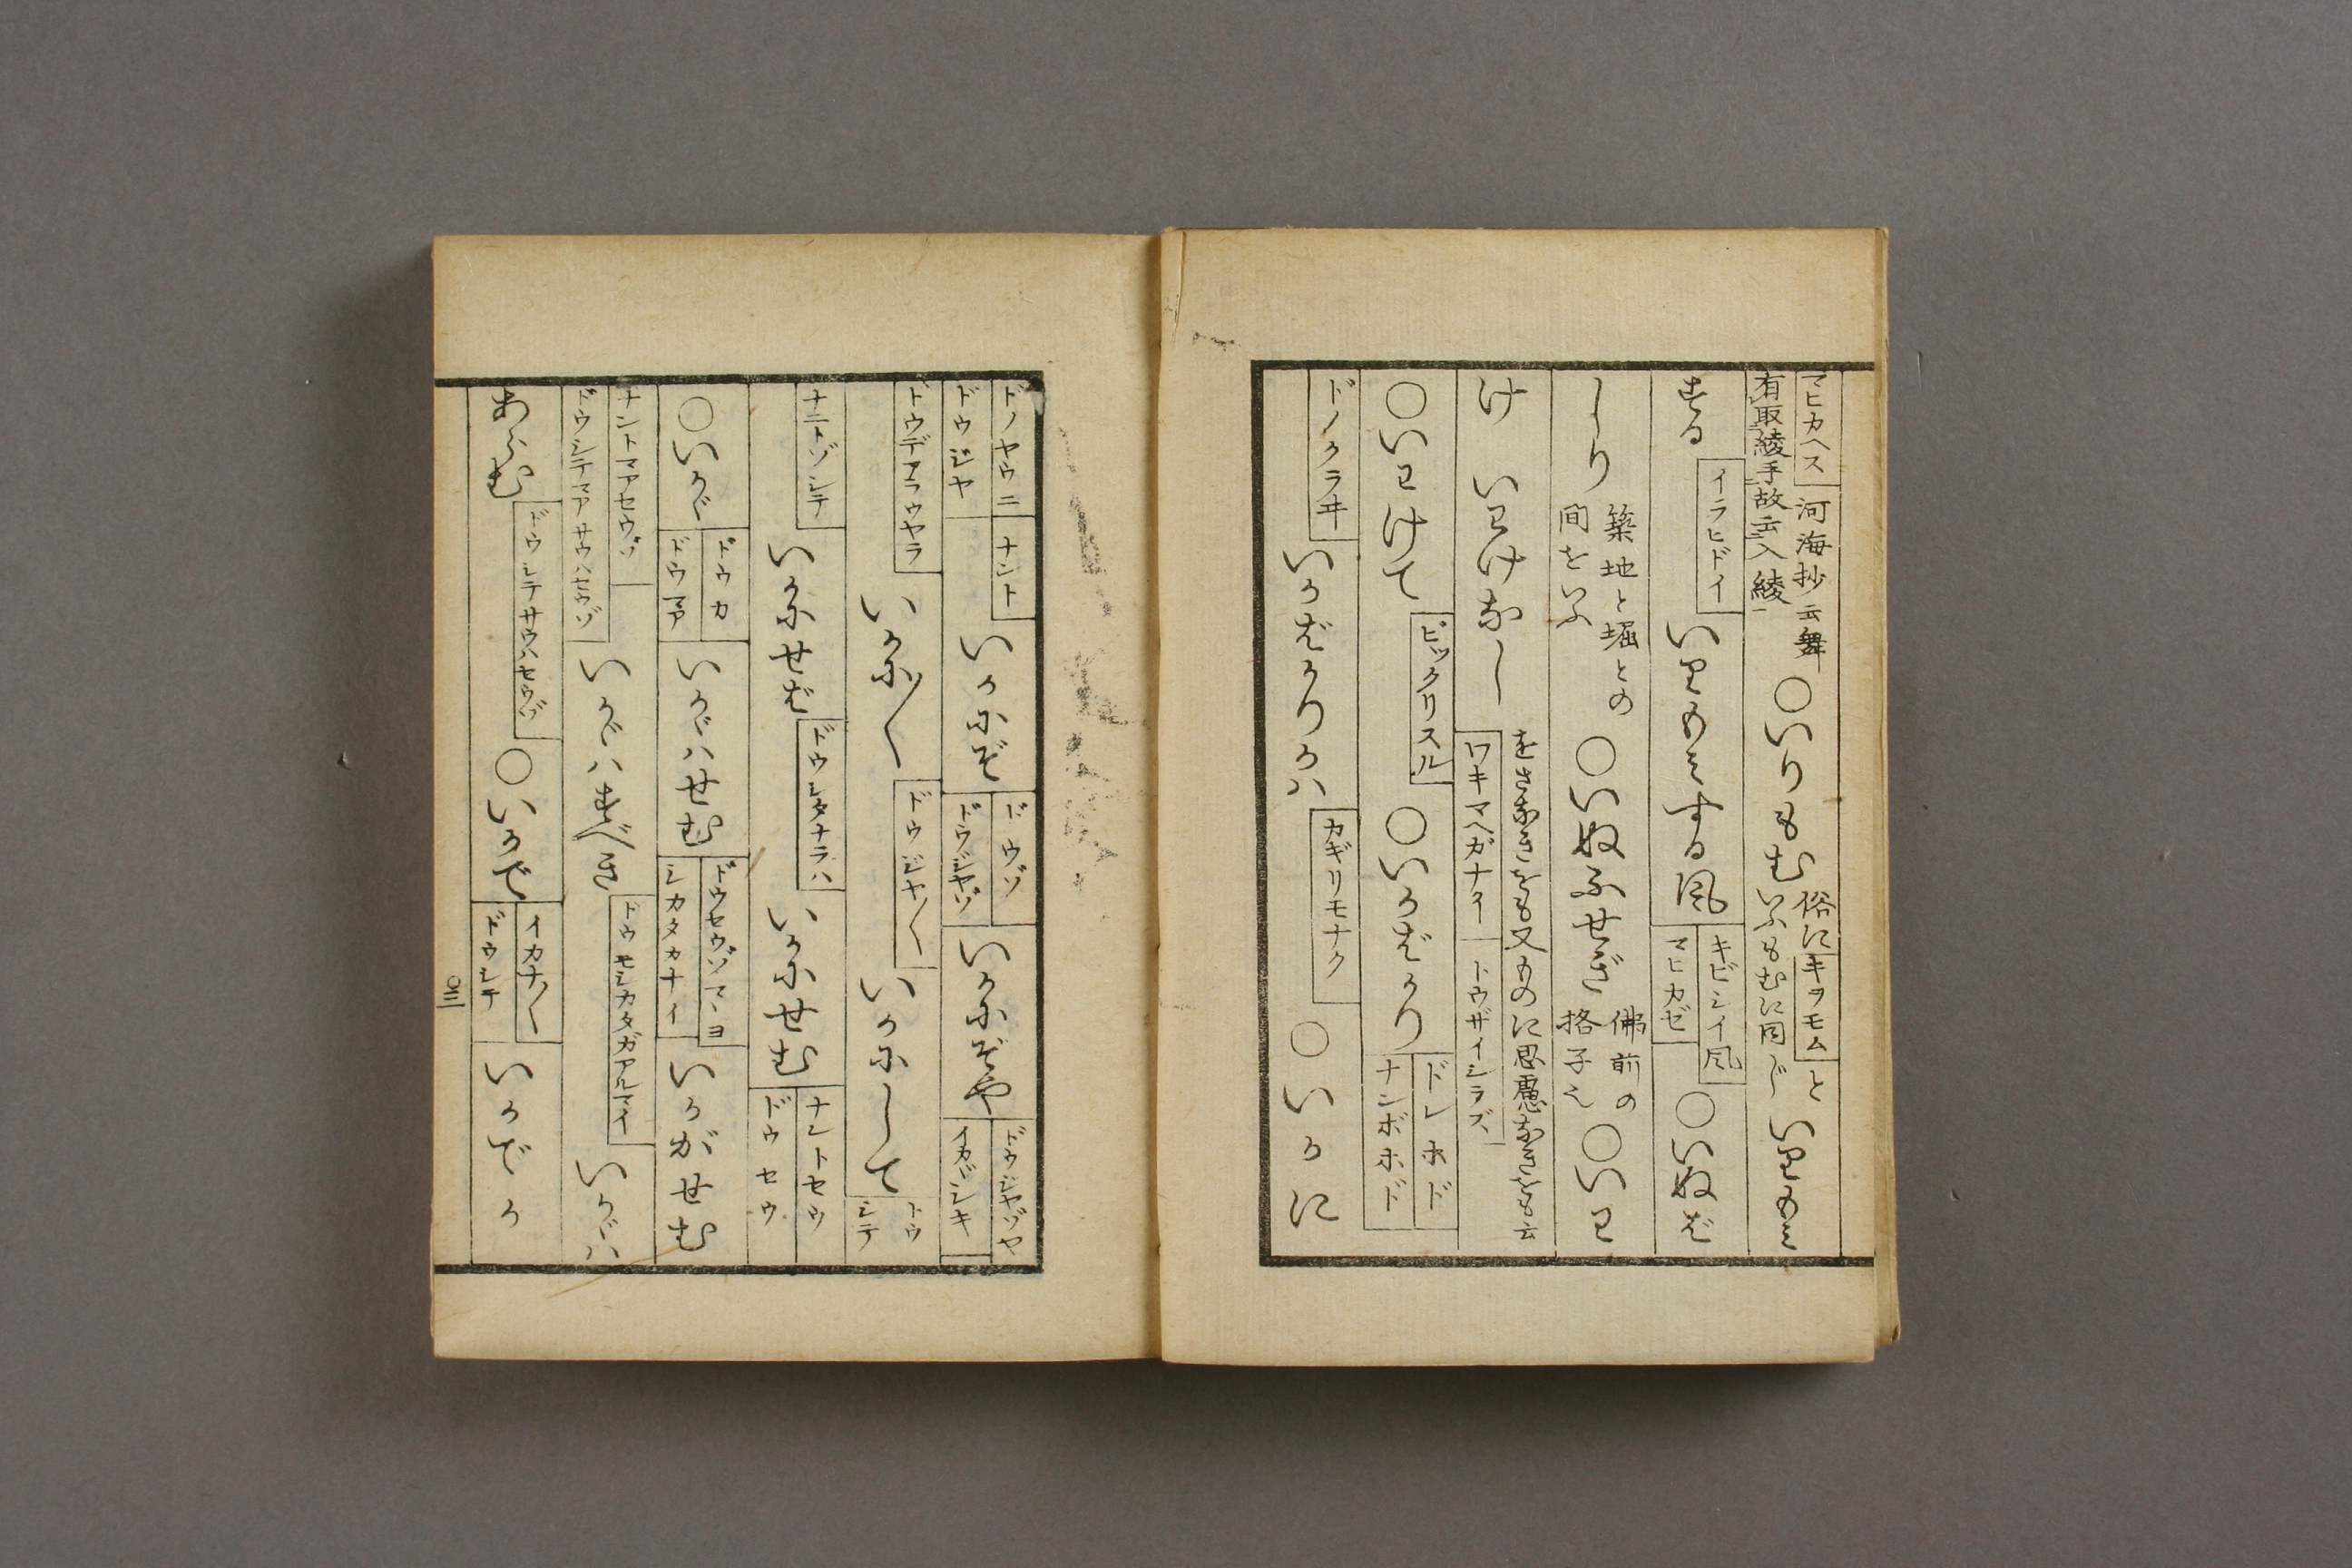 マヒカヘス 河海抄云舞
有取綾手故云入綾一 ○いりもむ 俗にキヲモム と
いふももむに同じ いりもみ
する イラヒドイ いりもみする風 キビシイ風
マヒカゼ ○いぬば
しり 築地と堀との
間をいふ ○いぬふせぎ 佛前の
格子也 ○いわ
け いわけなし をさなきをも又ものに思慮なきをも云
ワキマヘガナイ トウザイシラズ
○いわけて ビックリスル ○いかばかり ドレホド
ナンボホド
ドノクラヰ いかばかりかハ カギリモナク ○いかに
ドノヤウニ ナント
ドウジヤ いかにぞ ドウゾ
ドウジヤゾ いかにぞや ドウジヤゾヤ
イカヾシキ
ドウデアラウヤラ いかに〱 ドウジヤ〱 いかにして ドウ
シテ
ナニトゾシテ いかにせば ドウシタナラハ いかにせむ ナントセウ
ドウセウ
○いかゞ ドウカ
ドウマア いかゞハせむ ドウセウゾマヽヨ
シカタカナイ いかゞせむ
ナントマアセウゾ
ドウシテマアサウハセウゾ いかゞハすべき ドウモシカタガアルマイ いかゞハ
あらむ ドウシテサウハセウゾ ○いかで イカナ〱
ドウシテ いかでか